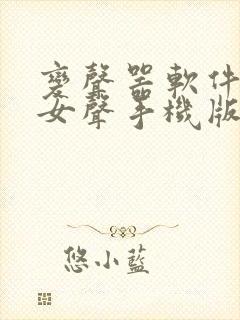 變聲器軟件
女聲手機版
悠小藍